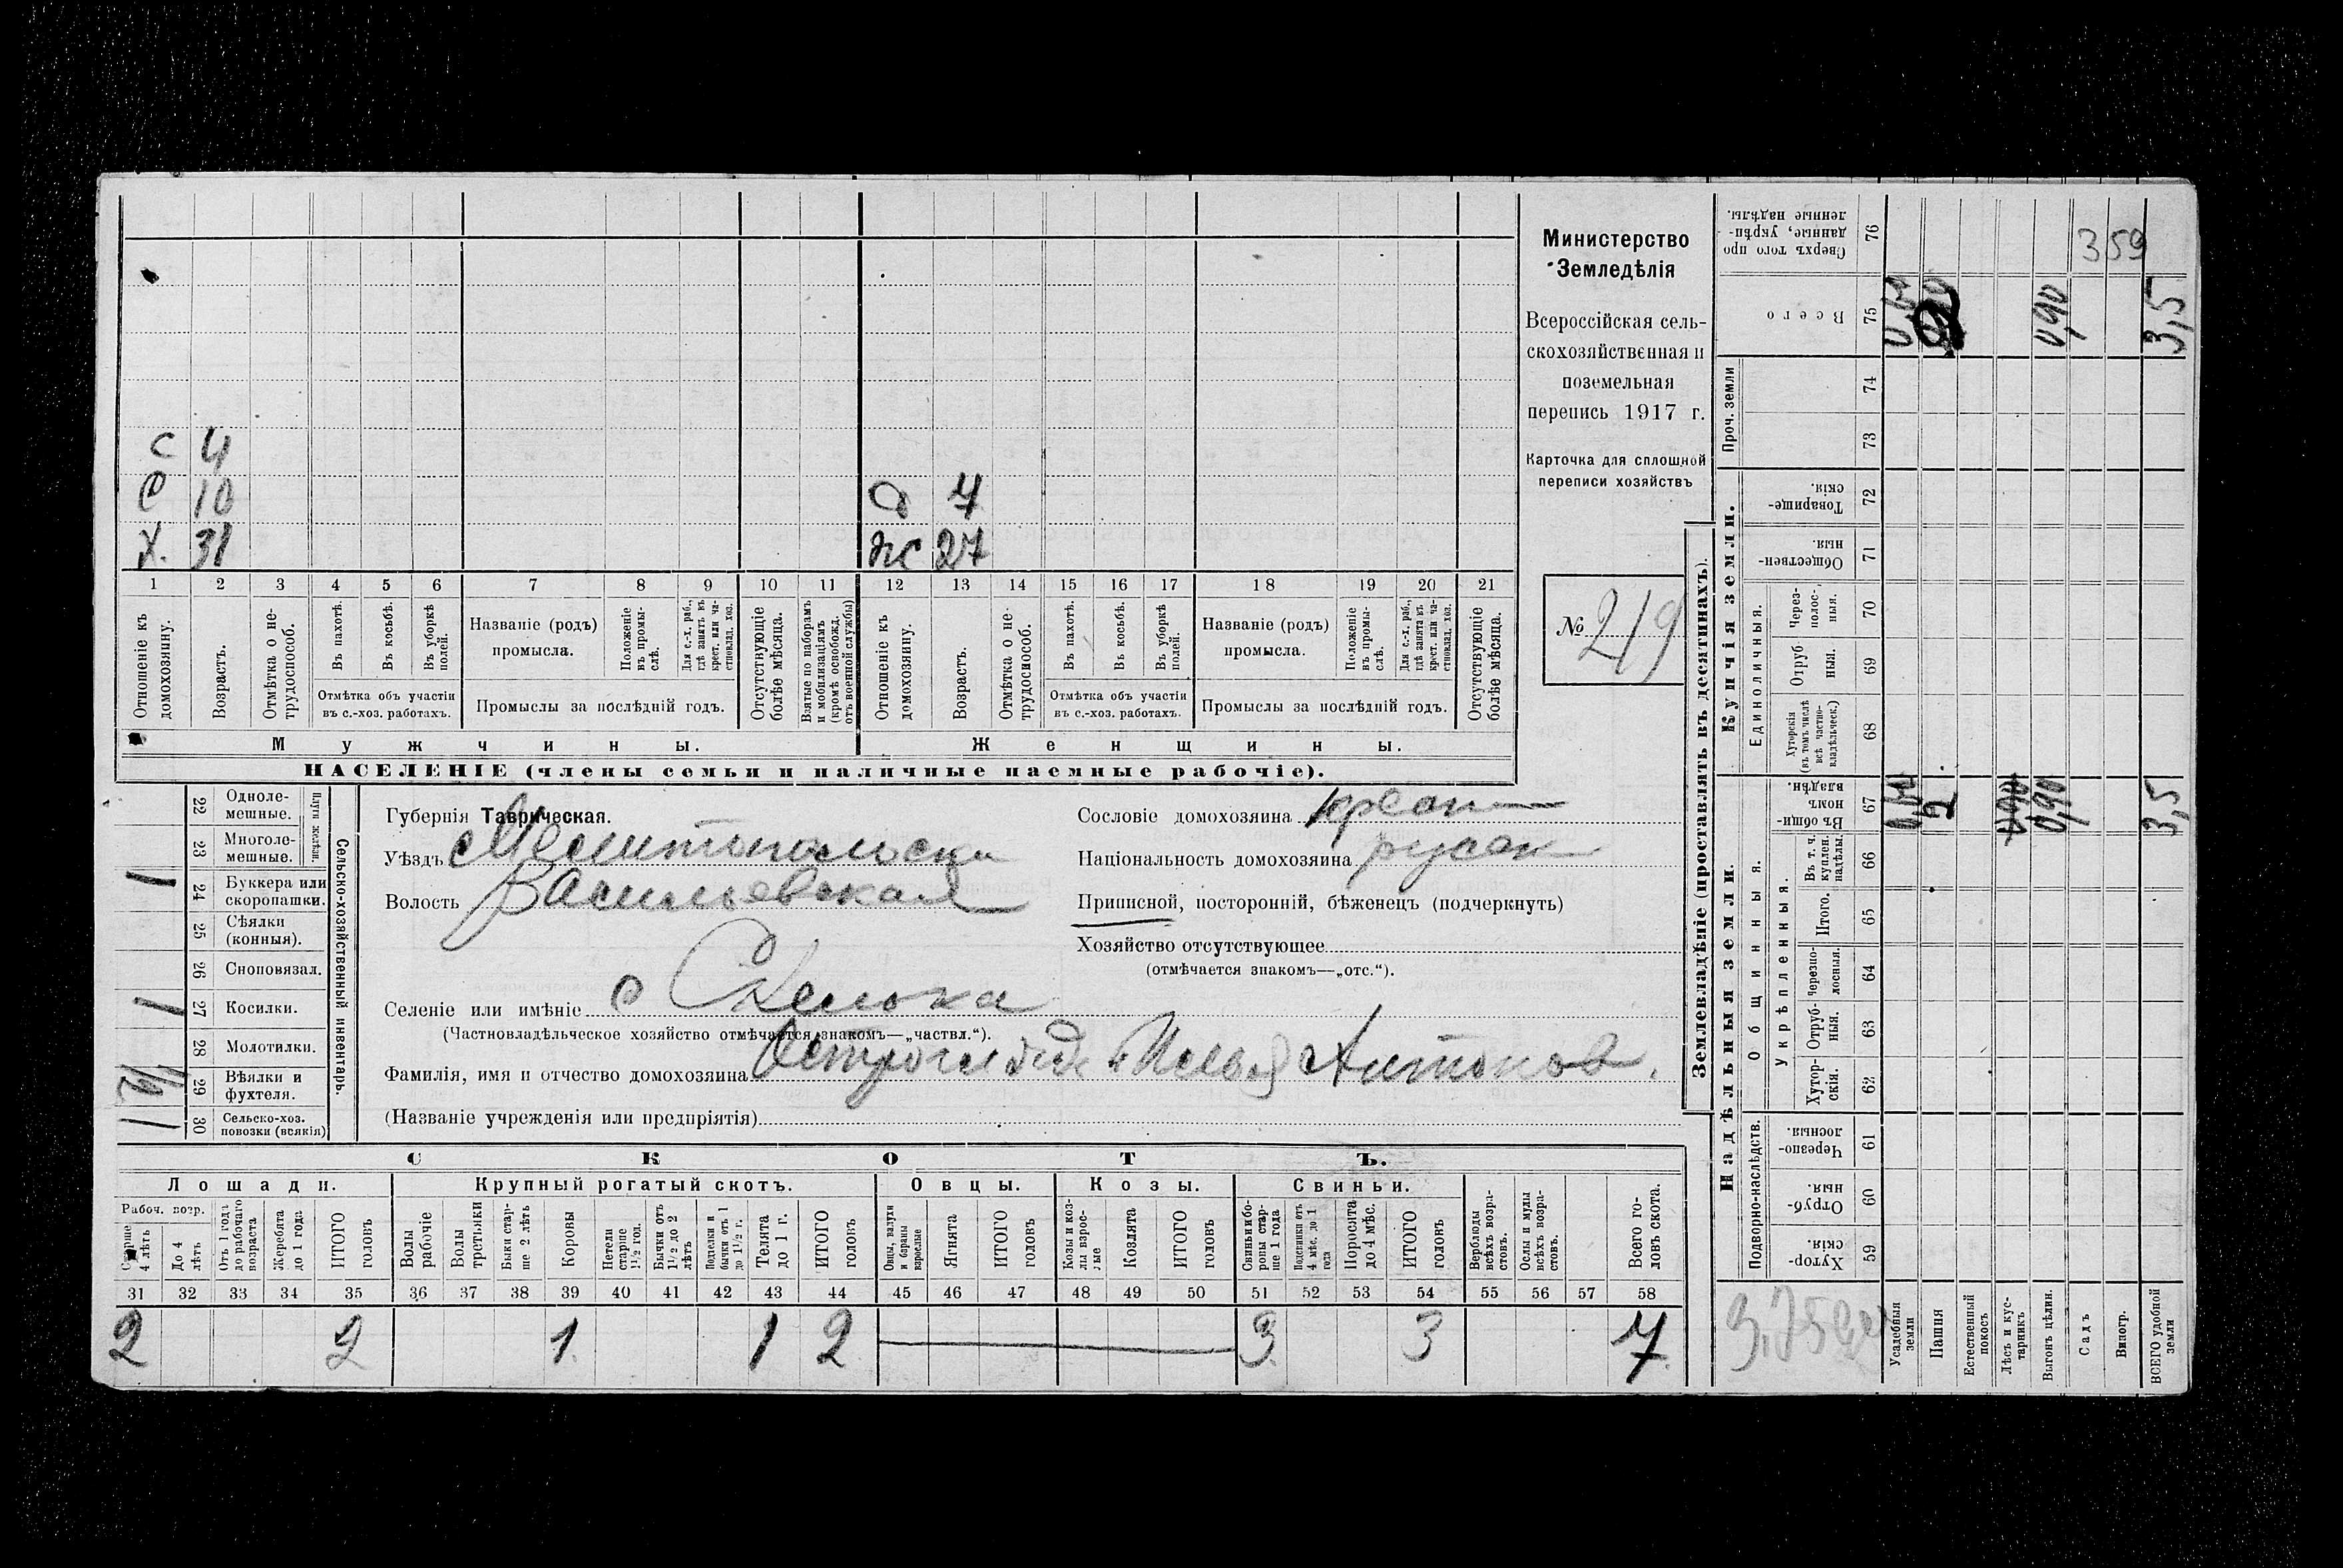 Министерство
Земледѣлія
Всероссійская сель-
скохозяйственная и
поземельная
перепись 1917 г.
Карточка для сплошной
переписи хозяйствъ
№ 249
С 4
С 10
Х. 31
д 7
ж 27
1 2 3 4 5 6 7 8 9 10 11 12 13 14 15 16 17 18 19 20 21
Отношеніе къ домохозяину.
Возрастъ.
Отмѣтка о не-трудоспособ.
Въ пахотѣ.
Въ косьбѣ.
Въ уборкѣ полей.
Отмѣтка объ участіи
въ с.-хоз. работахъ.
Названіе (родъ)
промысла.
Положеніе въ промы-слѣ.
Для с.-х. раб., гдѣ занятъ въ крест. или ча-стновлад. хоз.
Промыслы за послѣдній годъ.
Отсутствующіе болѣе мѣсяца.
Взятые по наборамъ и мобилизаціямъ (кромѣ освобожд. отъ военной службы)
Отношеніе къ домохозяину.
Возрастъ.
Отмѣтка о не-трудоспособ.
Въ пахотѣ.
Въ косьбѣ.
Въ уборкѣ полей.
Отмѣтка объ участіи
въ с.-хоз. работахъ.
Названіе (родъ)
промысла.
Положеніе въ промы-слѣ.
Для с.-х. раб., гдѣ занята въ крест. или ча-стновлад. хоз.
Промыслы за послѣдній годъ.
Отсутствующіе болѣе мѣсяца.
Мужчины.
Женщины.
НАСЕЛЕНІЕ (члены семьи и наличные наемные рабочіе).
Сельско-хозяйственный инвентарь.
Плуги желѣзн.
22 Одноле-мешные.
23 Многоле-мешные.
1 24 Буккера или скоропашки.
25 Сѣялки (конныя).
26 Сноповязал.
1 27 Косилки.
28 Молотилки.
29 Вѣялки и фухтеля.
1 30 Сельско-хоз. повозки (всякія)
Губернія Таврическая.
Уѣздъ Мелитопольски
Волость Васильевская
Селеніе или имѣніе с Скелька
(Частновладѣльческое хозяйство отмѣчается знакомъ—„частвл.“).
Фамилія, имя и отчество домохозяина Илья Антонов.
(Названіе учрежденія или предпріятія)
Сословіе домохозяина крестн
Національность домохозяина русск
Приписной, посторонній, бѣженецъ (подчеркнуть)
Хозяйство отсутствующее
(отмѣчается знакомъ—„отс.“).
СКОТЪ.
Лошади.
Крупный рогатый скотъ.
Овцы.
Козы.
Свиньи.
Рабоч. возр.
Старше 4 лѣтъ
До 4 лѣтъ
Отъ 1 года до рабочаго возраста
Жеребята до 1 года
ИТОГО головъ
Волы рабочіе
Волы третьяки
Быки стар-ше 2 лѣтъ
Коровы
Нетели старше 1½ год.
Бычки отъ 1½ до 2 лѣтъ
Подтелки и бычки отъ 1 до 1½ г.
Телята до 1 г.
ИТОГО головъ
Овцы, валухи и бараны взрослые
Ягнята
ИТОГО головъ
Козы и коз-лы взрос-лые
Козлята
ИТОГО головъ
Свиньи и бо-ровы стар-ше 1 года
Подсвинки отъ 4 мѣс. до 1 года
Поросята до 4 мѣс.
ИТОГО головъ
Верблюды всѣхъ возра-стовъ.
Ослы и мулы всѣхъ возра-стовъ.
Всего го-ловъ скота.
31 32 33 34 35 36 37 38 39 40 41 42 43 44 45 46 47 48 49 50 51 52 53 54 55 56 57 58
2 2 1 1 2 3 3 7
Землевладѣніе (проставлять въ десятинахъ).
Купчія земли.
Надѣльныя земли.
Сверхъ того про-данные, укрѣп-ленные надѣлы. 76
359
Всего 75
0,90 3,5
Проч. земли
74
73
Товарище-скія. 72
Обществен-ныя. 71
Единоличныя.
Через-полос-ныя. 70
Отруб ныя. 69
Хуторскія (въ томъ числѣ всѣ частно-владѣльческ.) 68
Общинныя.
Въ общи-номъ владѣн. 67
2 0,90 0,90 3,5
Укрѣпленныя.
Въ т. ч. куплен. надѣлы. 66
Итого. 65
Черезпо-лосныя. 64
Отруб-ныя. 63
Хутор-скія. 62
Подворно-наслѣдств.
Черезпо-лосныя. 61
Отруб-ныя. 60
Хутор-скія. 59
Усадебныя земли
Пашня
Естественный покосъ
Лѣсъ и кус-тарникъ
Выгонъ цѣлин.
Садъ
Виногр.
ВСЕГО удобной земли